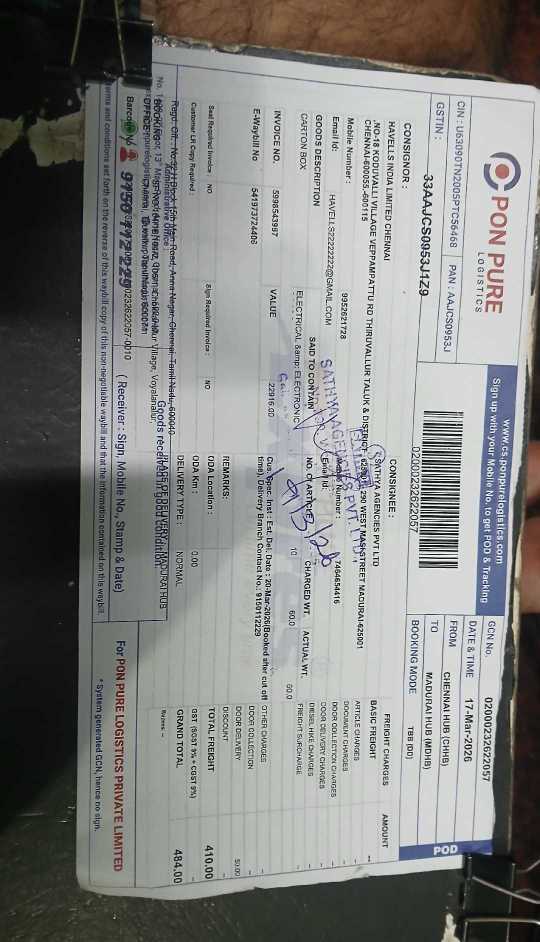 PON PURE
LOGISTICS
www.cs.ponpurelogistics.com
Sign up with your Mobile No. to get POD & Tracking
CIN : U63090TN2005PTC56468 PAN : AAJCS0953J
GSTIN : 33AAJCS0953J1Z9
02000232622057
POD
GCN No. 02000232622057
DATE & TIME 17-Mar-2026
FROM CHENNAI HUB (CHHB)
TO MADURAI HUB (MDHB)
BOOKING MODE TBB (DD)
CONSIGNOR :
HAVELLS INDIA LIMITED CHENNAI
,NO-18 KODUVALLI VILLAGE VEPPAMPATTU RD THIRUVALLUR TALUK & DISTRICT
CHENNAI-600055,-600115
Mobile Number : 9952621728
Email Id: HAVELLS22222222@GMAIL.COM
CONSIGNEE :
SATHYA AGENCIES PVT LTD
290 WEST MASI STREET MADURAI-625001
Mobile Number : 7464654416
Email Id:
SATHYA AGENCIES PVT. LTD
19/3/26
GOODS DESCRIPTION SAID TO CONTAIN NO. OF ARTICLE CHARGED WT. ACTUAL WT.
CARTON BOX ELECTRICAL &amp; ELECTRONIC 10 60.0 60.0
INVOICE NO. 5998543987 VALUE 22916.00
E-Waybill No 541973724406
Cus. Spec. Inst : Est. Del. Date : 20-Mar-2026(Booked after cut off
time), Delivery Branch Contact No.: 9150112229
REMARKS:
Seal Required Invoice : NO Sign Required Invoice : NO ODA Location :
Customer LR Copy Required ODA Km : 0.00
DELIVERY TYPE : NORMAL
FREIGHT CHARGES AMOUNT
BASIC FREIGHT --
ARTICLE CHARGES
DOCUMENT CHARGES
DOOR COLLECTION CHARGES
DOOR DELIVERY CHARGES
DIESEL HIKE CHARGES
FREIGHT SURCHARGE
OTHER CHARGES
DOOR COLLECTION
DOOR DELIVERY 50.00
DISCOUNT
TOTAL FREIGHT 410.00
GST (SGST 9% + CGST 9%)
GRAND TOTAL 484.00
Administrative Office :
Goods received in good condition
( Receiver : Sign, Mobile No., Stamp & Date)
9150112229
For PON PURE LOGISTICS PRIVATE LIMITED
terms and conditions set forth on the reverse of this waybill copy of this non-negotiable waybill and that the information contained on this waybill.
* System generated GCN, hence no sign.